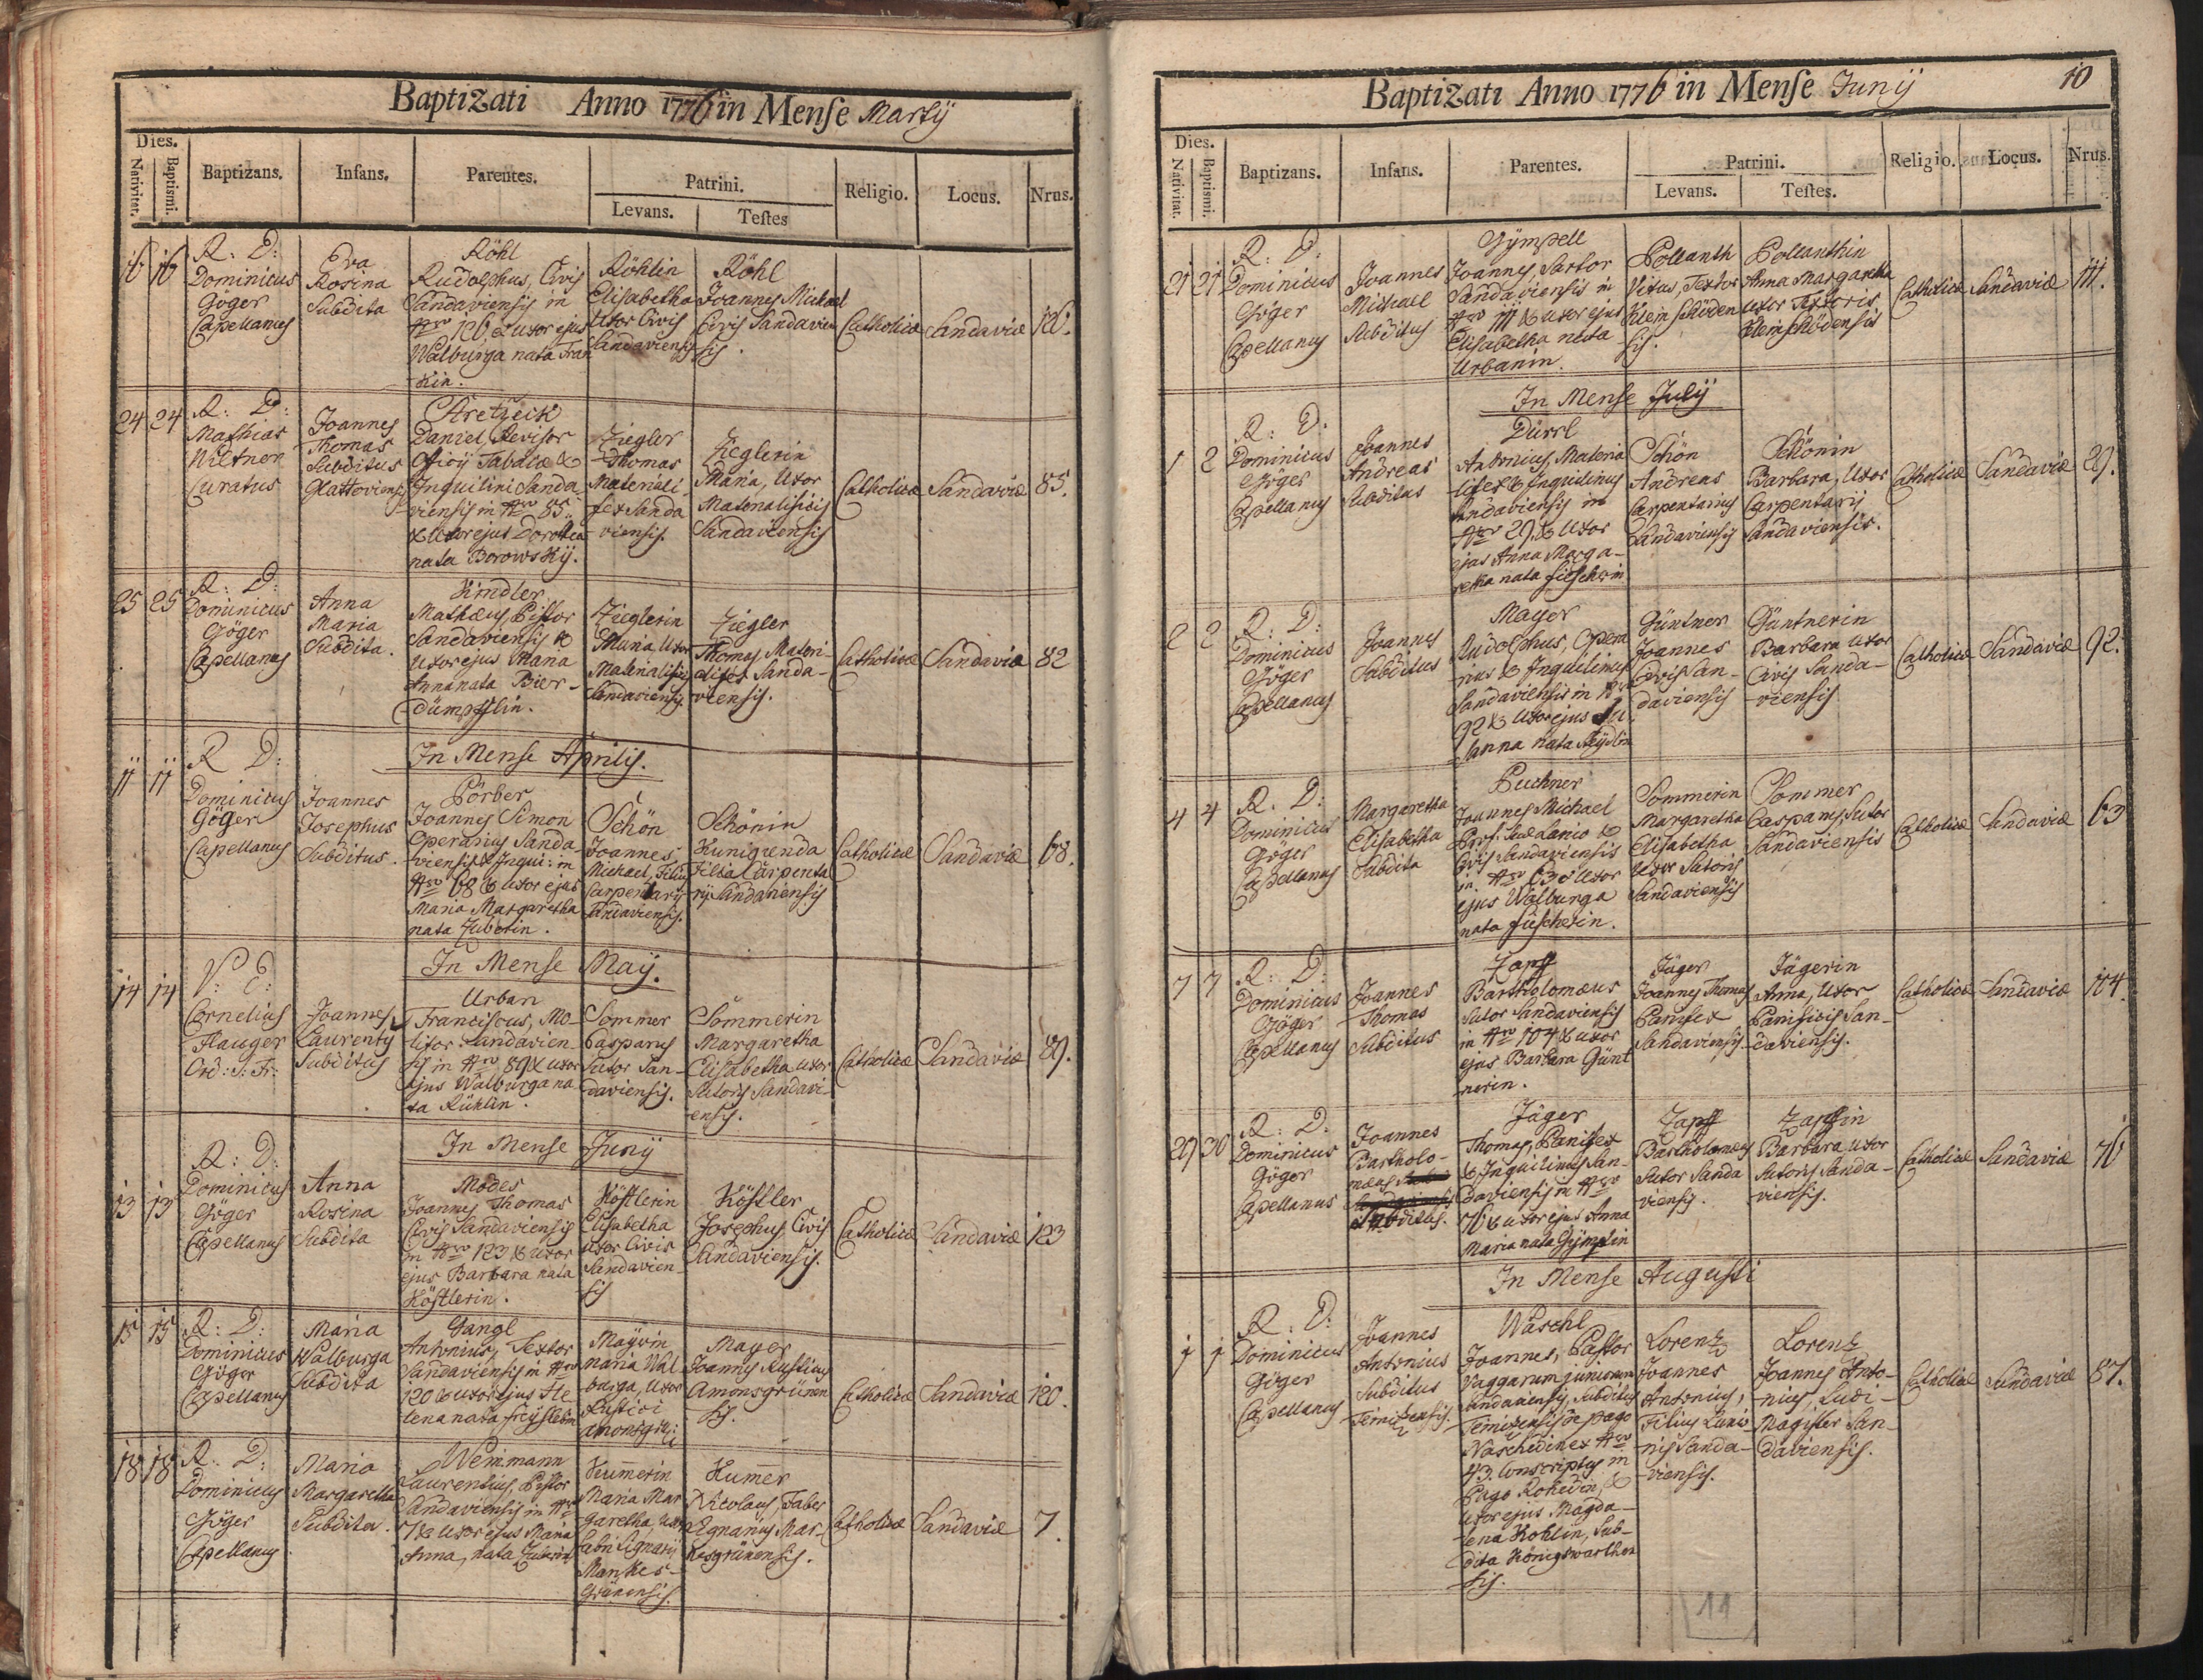 Baptizati Anno 1776 in Mense Martij
Dies.
Nativitat. Baptismi. Baptizans. Infans. Parentes. Patrini. Religio. Locus. Nrus.
Levans. Testes
16 16
R: D:
Dominicus
Göger
Capellanus
Eva
Rosina
Subdita
Röhl
Rudolphus, Civis
Sandaviensis in
Nro 126 & uxor ejus
Walburga nata Fran
-kin.
Röhlin
Elisabetha
Uxor Civis
Sandaviensis
Röhl
Joannes Michael
Civis Sandavien
sis.
Catholicæ Sandaviæ 126.
24 24
R: D:
Mathias
Wiltner
Curatus
Joannes
Thomas
Subditus
Glattoviensis
Stretzeck
Daniel Revisor
Officij Tabacæ &
Inquilini Sanda-
viensis in Nro 85.
& Uxor ejus Dorothea
nata Borowskÿ.
Ziegler
Thomas
Materiali-
fex Sanda
viensis.
Zieglerin
Maria, Uxor
Materialificis
Sandaviensis
Catholicæ Sandaviæ 85.
25 25
R: D:
Dominicus
Göger
Capellanus
Anna
Maria
Subdita.
Kindler
Mathæus, Pistor
Sandaviensis &
Uxor ejus Maria
Anna nata Bier-
dümpfflin.
Zieglerin
Maria, Uxor
Materialificis
Sandaviensis.
Ziegler
Thomas, Materi-
alifex Sanda-
viensis.
Catholicæ Sandaviæ 82
In Mense Aprilis.
11 11
R D:
Dominicus
Göger
Capellanus
Joannes
Josephus
Subditus.
Pörber
Joannes Simon
Operarius Sanda-
viensis & Inqui: in
Nro 68 & uxor ejus
Maria Margaretha
nata Zuberin.
Schön
Joannes
Michael, Filius
Carpentarij
Sandaviensis.
Schönin
Kunigunda
Filia Carpenta
rij Sandaviensis
Catholicæ Sandaviæ 68.
In Mense Maij.
14 14
V: P:
Cornelius
Flauger
Ord: S: Fr:
Joannes
Laurenty
Subditus
Urban
Franciscus, Mo-
litor Sandavien-
sis in Nro 89 & uxor
ejus Walburga na
ta Rühlin.
Sommer
Casparus
Sutor San-
daviensis.
Sommerin
Margaretha
Elisabetha uxor
Sutoris Sandavi-
ensis.
Catholicæ Sandaviæ 89.
In Mense Junij
13 13
R: D:
Dominicus
Göger
Capellanus
Anna
Rosina
Subdita
Modes
Joannes Thomas
Civis Sandaviensis
in Nro 123 & uxor
ejus Barbara nata
Köstlerin.
Köstlerin
Elisabetha
uxor Civis
Sandavien-
sis
Köstler
Josephus Civis
Sandaviensis.
Catholicæ Sandaviæ 123
15 15
R: D:
Dominicus
Göger
Capellanus
Maria
Walburga
Subdita
Gangl
Antonius, Textor
Sandaviensis in Nro
120 & uxor ejus He
lena nata
Mayrin
Maria Wal
burga, Uxor
Rustici
Amonsgrün:
Mayer
Joannes Rusticus
Amonsgrünen
sis.
Catholicæ Sandaviæ 120.
18 18
R: D:
Dominicus
Göger
Capellanus
Maria
Margaretha
Subdita.
Weinmann
Laurentius, Pistor
Sandaviensis in Nro
7 & uxor ejus Maria
Anna, nata Zuberin
Kum̄erin
Maria Mar
garetha, uxor
Fabri Lignarij
Markes-
grünensis.
Kum̄er
Nicolaus, Faber
Lignarius Mar-
kesgrünensis.
Catholicæ Sandaviæ 7.
Baptizati Anno 1776 in Mense Junij 10
Dies.
Nativitat. Baptismi. Baptizans. Infans. Parentes. Patrini. Religio. Locus. Nrus.
Levans. Testes.
21 21
R: D:
Dominicus
Göger
Capellanus
Joannes
Michael
Subditus
Gÿmpell
Joannes, Sartor
Sandaviensis in
Nro 111 & uxor ejus
Elisabetha nata
Urbanin.
Pollanth
Vitus, Textor
Klein Schöden
sis.
Pollanthin
Anna Margaretha
uxor Textoris
Kleinschödensis
Catholicæ Sandaviæ 111.
In Mense Julij
1 2
R: D:
Dominicus
Göger
Capellanus
Joannes
Andreas
Subditus
Dürrl
Antonius, Materia
lifex & Inquilinus
Sandaviensis in
Nro 29. & Uxor
ejus Anna Marga-
retha nata Fischerin
Schön
Andreas
Carpentarius
Sandaviensis
Schönin
Barbara, Uxor
Carpentarij
Sandaviensis.
Catholicæ Sandaviæ 29.
2 2
R: D:
Dominicus
Göger
Capellanus
Joannes
Subditus
Mayer
Rudolphus, Opera
rius & Inquilinus
Sandaviensis in Nro
92 & Uxor ejus Su
sanna nata
Güntner
Joannes
Civis San-
daviensis
Güntnerin
Barbara uxor
Civis Sanda-
viensis
Catholicæ Sandaviæ 92.
4 4
R: D:
Dominicus
Göger
Capellanus
Margaretha
Elisabetha
Subdita
Puchner
Joannes Michael
&
Civis Sandaviensis
in Nro 63 & Uxor
ejus Walburga
nata Fischerin.
Sommerin
Margaretha
Elisabetha
Uxor Sutoris
Sandaviensis
Sommer
Casparus Sutor
Sandaviensis
Catholicæ Sandaviæ 63
7 7
R: D:
Dominicus
Göger
Capellanus
Joannes
Thomas
Subditus
Zapff
Bartholomæus
Sutor Sandaviensis
in Nro 104 & uxor
ejus Barbara Günt
nerin.
Jäger
Joannes Thomas
Panifex
Sandaviensis
Jägerin
Anna, Uxor
Panificis San-
daviensis.
Catholicæ Sandaviæ 104.
29 30
R: D:
Dominicus
Göger
Capellanus
Joannes
Bartholo-
mæus
Subditus.
Jäger
Thomas, Panifex
& Inquilinus San-
daviensis in Nro
76 & uxor ejus Anna
Maria nata Gÿmplin
Zapff
Bartholomæus
Sutor Sanda
viensis.
Zapffin
Barbara uxor
Sutoris Sanda-
viensis.
Catholicæ Sandaviæ 76
In Mense Augusti
1 1
R: D:
Dominicus
Göger
Capellanus
Joannes
Antonius
Subditus
Teinizensis.
Waschl
Joannes, Pastor
Vaccarum juniorum
Sandaviensis, Subditus
Teinizensis de pago
Naschedin ex Nro
43. Conscriptus in
Pago Rohedin, &
uxor ejus Magda-
lena Kohlin, Sub-
dita Königswarthen
sis.
Lorentz
Joannes
Antonius,
Filius Lanio
nis Sanda-
viensis.
Lorentz
Joannes Anto-
nius, Ludi-
Magister San-
daviensis.
Catholicæ Sandaviæ 87.
11